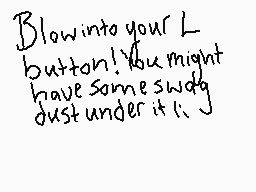 Blow into your L
button! You might
have some swag
dust under it (: